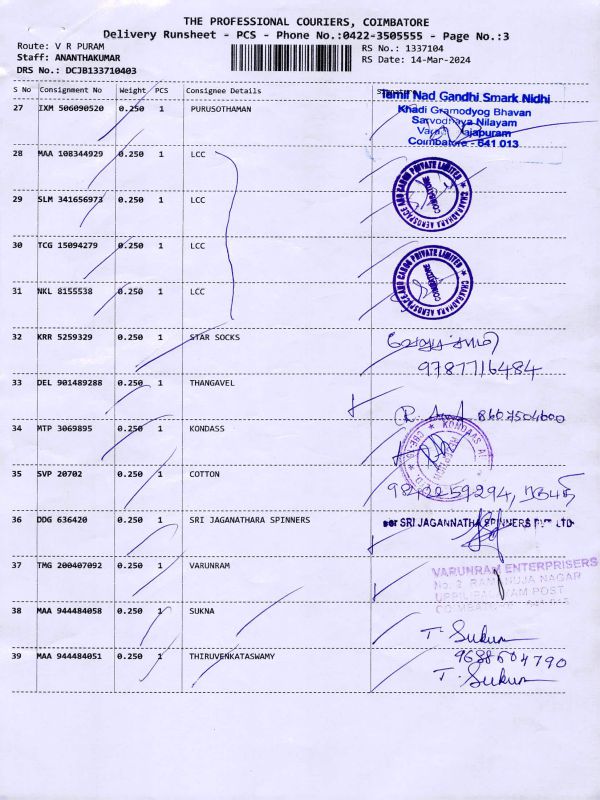 THE PROFESSIONAL COURIERS, COIMBATORE
Delivery Runsheet - PCS - Phone No.:0422-3505555 - Page No.:3
Route: V R PURAM RS No.: 1337104
Staff: ANANTHAKUMAR RS Date: 14-Mar-2024
DRS No.: DCJB133710403
S No Consignment No Weight PCS Consignee Details
27 IXM 506090520 0.250 1 PURUSOTHAMAN
Tamil Nad Gandhi Smark Nidhi
Khadi Gramodyog Bhavan
Sarvodhaya Nilayam
Coimbatore - 641 013
28 MAA 108344929 0.250 1 LCC
CHAKRADHARA AEROSPACE AND CARGO PRIVATE LIMITED
COIMBATORE
29 SLM 341656973 0.250 1 LCC
30 TCG 15094279 0.250 1 LCC
CHAKRADHARA AEROSPACE AND CARGO PRIVATE LIMITED
COIMBATORE
31 NKL 8155538 0.250 1 LCC
32 KRR 5259329 0.250 1 STAR SOCKS
9787716484
33 DEL 901489288 0.250 1 THANGAVEL
8607504600
34 MTP 3069895 0.250 1 KONDASS
KONDAAS
35 SVP 20702 0.250 1 COTTON
9842259294,
36 DDG 636420 0.250 1 SRI JAGANATHARA SPINNERS
SRI JAGANNATHA SPINNERS PVT LTD
37 TMG 200407092 0.250 1 VARUNRAM
VARUNRAM ENTERPRISERS
No. 2 RAMANUJA NAGAR
UPPILIPALAYAM POST
38 MAA 944484058 0.250 1 SUKNA
T. Sukum
39 MAA 944484051 0.250 1 THIRUVENKATASWAMY
9688604790
T. Sukum